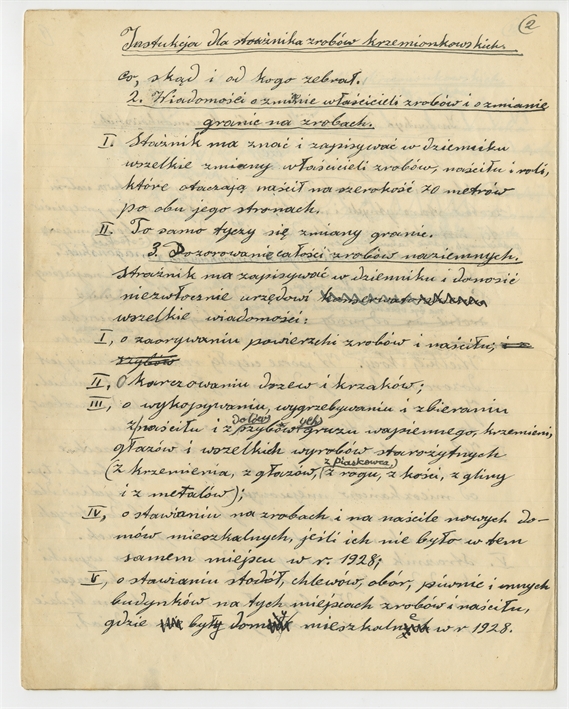 2
Instukcja dla strażnika zrobów krzemionkowskich.
co, skąd i od kogo zebrał.
2. Wiadomości o zmianie właścicieli zrobów i o zmianie
granic na zrobach.
I. Strażnik ma znać i zapisywać w dzienniku
wszelkie zmiany właścicieli zrobów, naściłu i roli,
które otaczają naścił na szerokość 70 metrów
po obu jego stronach.
II. To samo tyczy się zmiany granic.
3. Dozorowanie całości zrobów naziemnych.
Strażnik ma zapisywać w dzienniku i donosić
niezwłocznie urzędowi
wszelkie wiadomości:
I, o zaorywaniu powierzchni zrobów i naściłu, i
szybów
II, O karczowaniu drzew i krzaków;
III, o wykopywaniu, wygrzebywaniu i zbieraniu
z naściłu i z dołów szybowych gruzu wapiennego, krzemieni,
głazów i wszelkich wyrobów starożytnych
(z krzemienia, z głazów, z piaskowca, (z rogu, z kości, z gliny
i z metalów);
IV, o stawianiu na zrobach i na naścile nowych do-
mów mieszkalnych, jeśli ich nie było w tem
samem miejscu w r. 1928;
V, o stawianiu stodół, chlewów, obór, piwnic i innych
budynków na tych miejscach zrobów i naściłu,
gdzie były domy mieszkalne w r 1928.